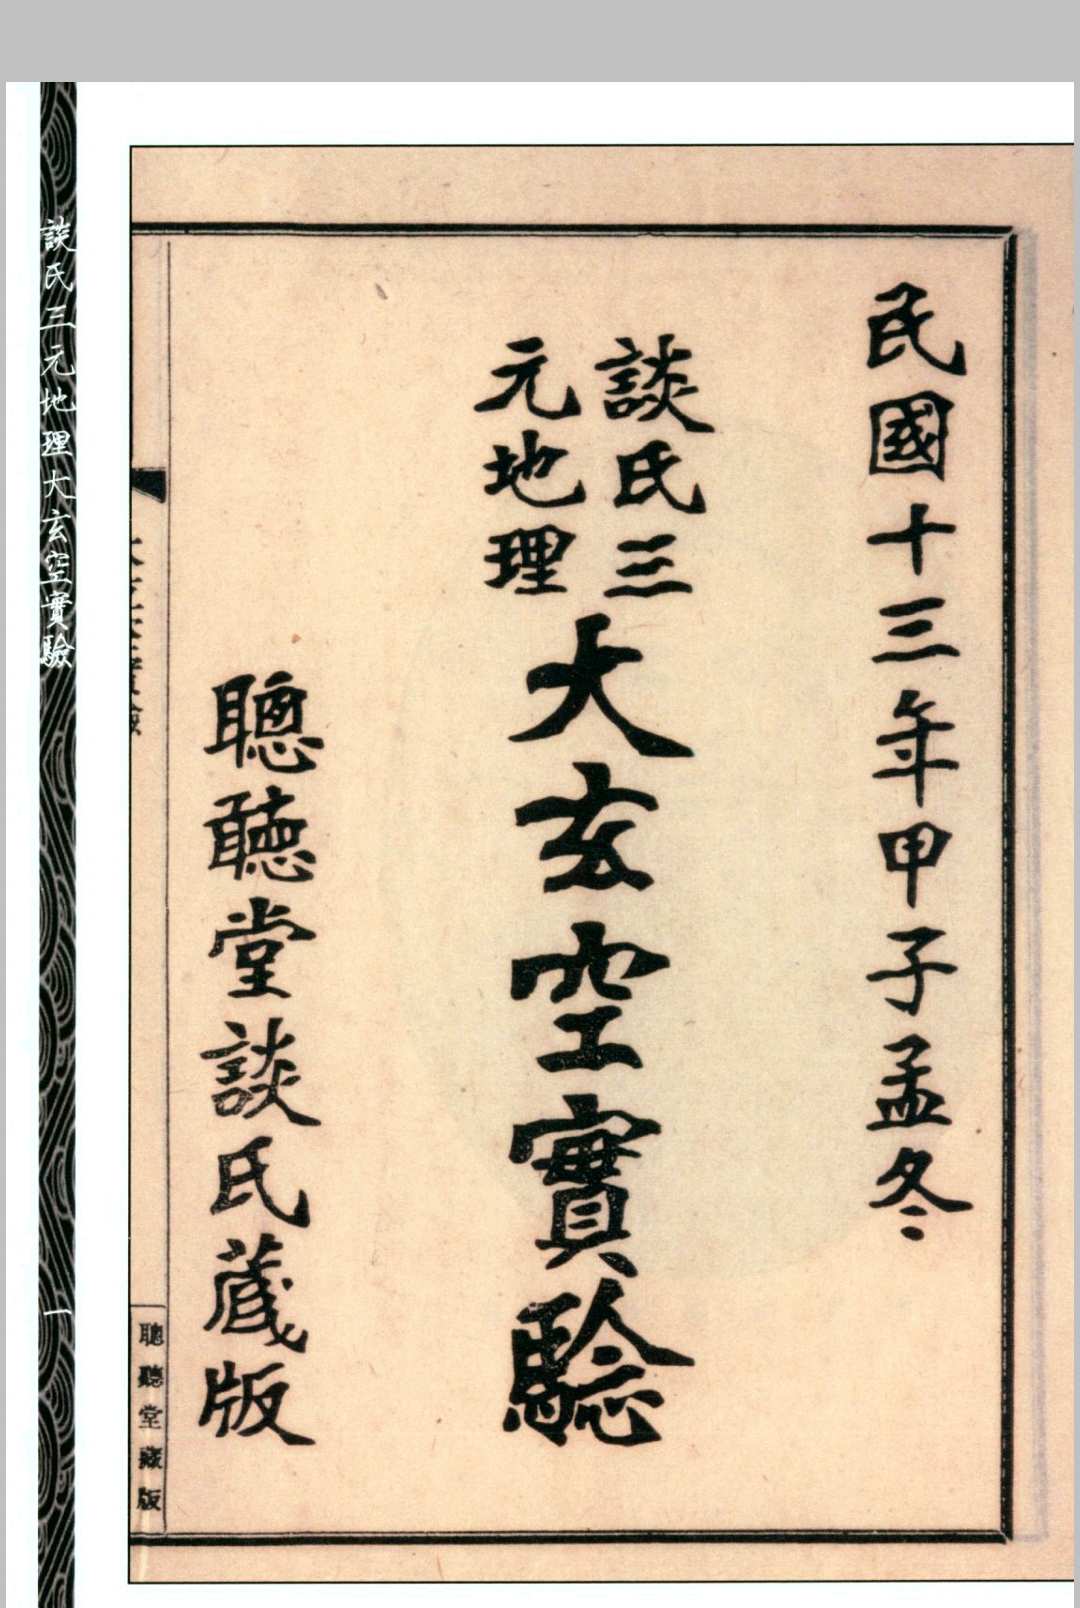 民國十三年甲子孟冬
談氏三
元地理
大玄空實驗
聰聽堂談氏藏版
聰聽堂藏版
談氏三元地理大玄空實驗
一